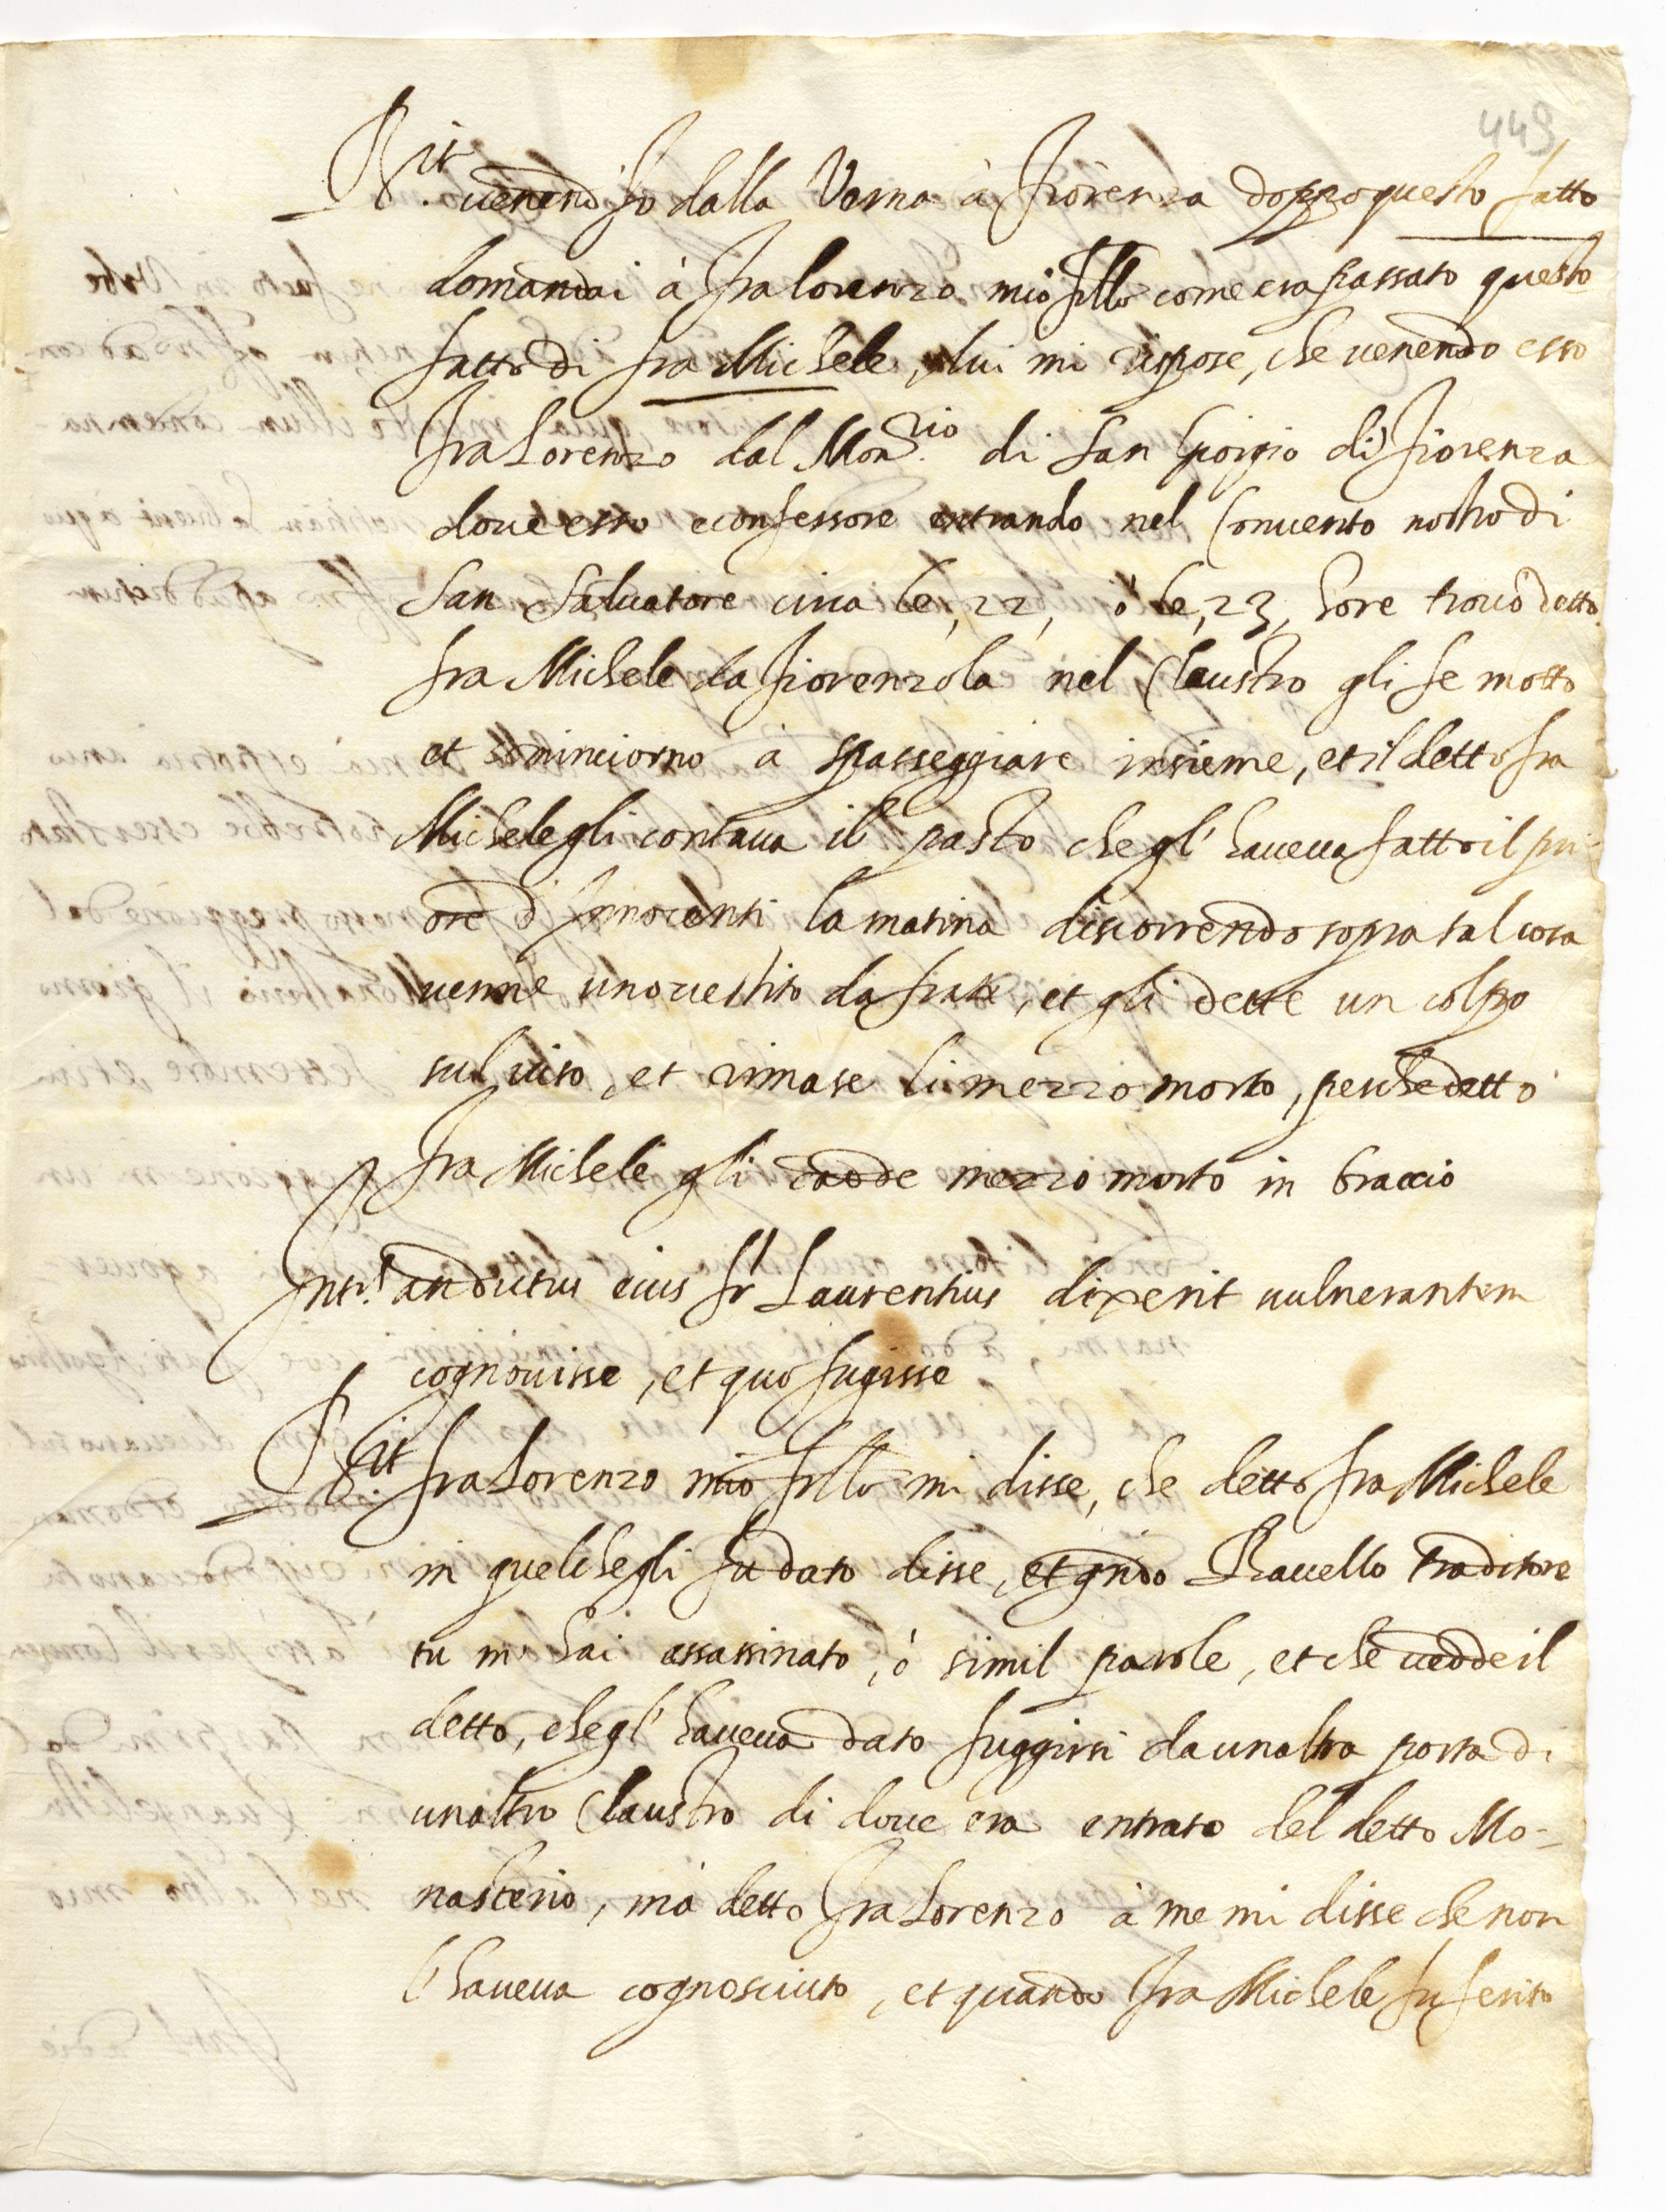 449
R.it venend'Io dalla Verna à Fiorenza doppo questo fatto
domandai à fra Lorenzo mio fr̃llo come era passato questo
fatto di fra Michele, lui mi rispose, che venendo esso
fra Lorenzo dal Mon.rio di San Giorgio di Fiorenza
dove esso confessore entrando nel Convento nostro di
San Salvatore circa le, 22, ò le, 23, hore trovò detto
fra Michele da Fiorenzola nel Claustro gli fe motto
et cominciorno à spasseggiare insieme, et il detto fra
Michele gli contava il pasto che gl' haveva fatto il pri-
ore d'Innocenti la matina discorrendo sopra tal cosa
venne uno vestito da frate, et gli dette un colpo
sul viso, et rimase li mezzo morto, perche detto
fra Michele gli cadde mezzo morto in braccio
Int.s an dictus eius fr̃ Laurentius dixerit vulnerantem
cognovisse, et quo fugisse
R.it fra Lorenzo mio fr̃llo mi disse, che detto fra Michele
in quel che gli fu dato disse, et gridò Ravello traditore
tu m' hai assassinato, ò simil parole, et che vedde il
detto, che gl' haveva dato fuggirsi da un altra porta di
un altro Claustro di dove era entrato del detto Mo-
nasterio, mà detto fra Lorenzo à me mi disse che non
l'haveva cognosciuto, et quando fra Michele fu ferito